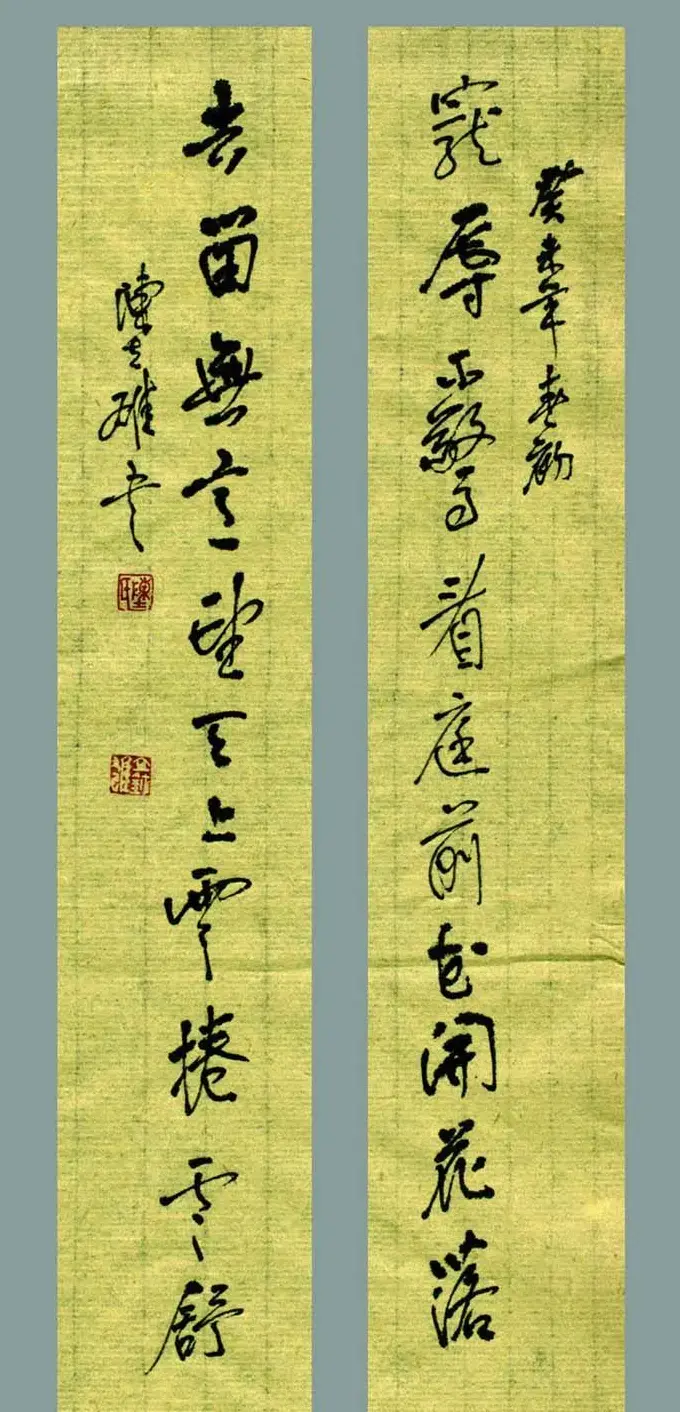 癸未年春初
寵辱不驚看庭前花開花落
去留無意望天上雲捲雲舒
陳立雄書